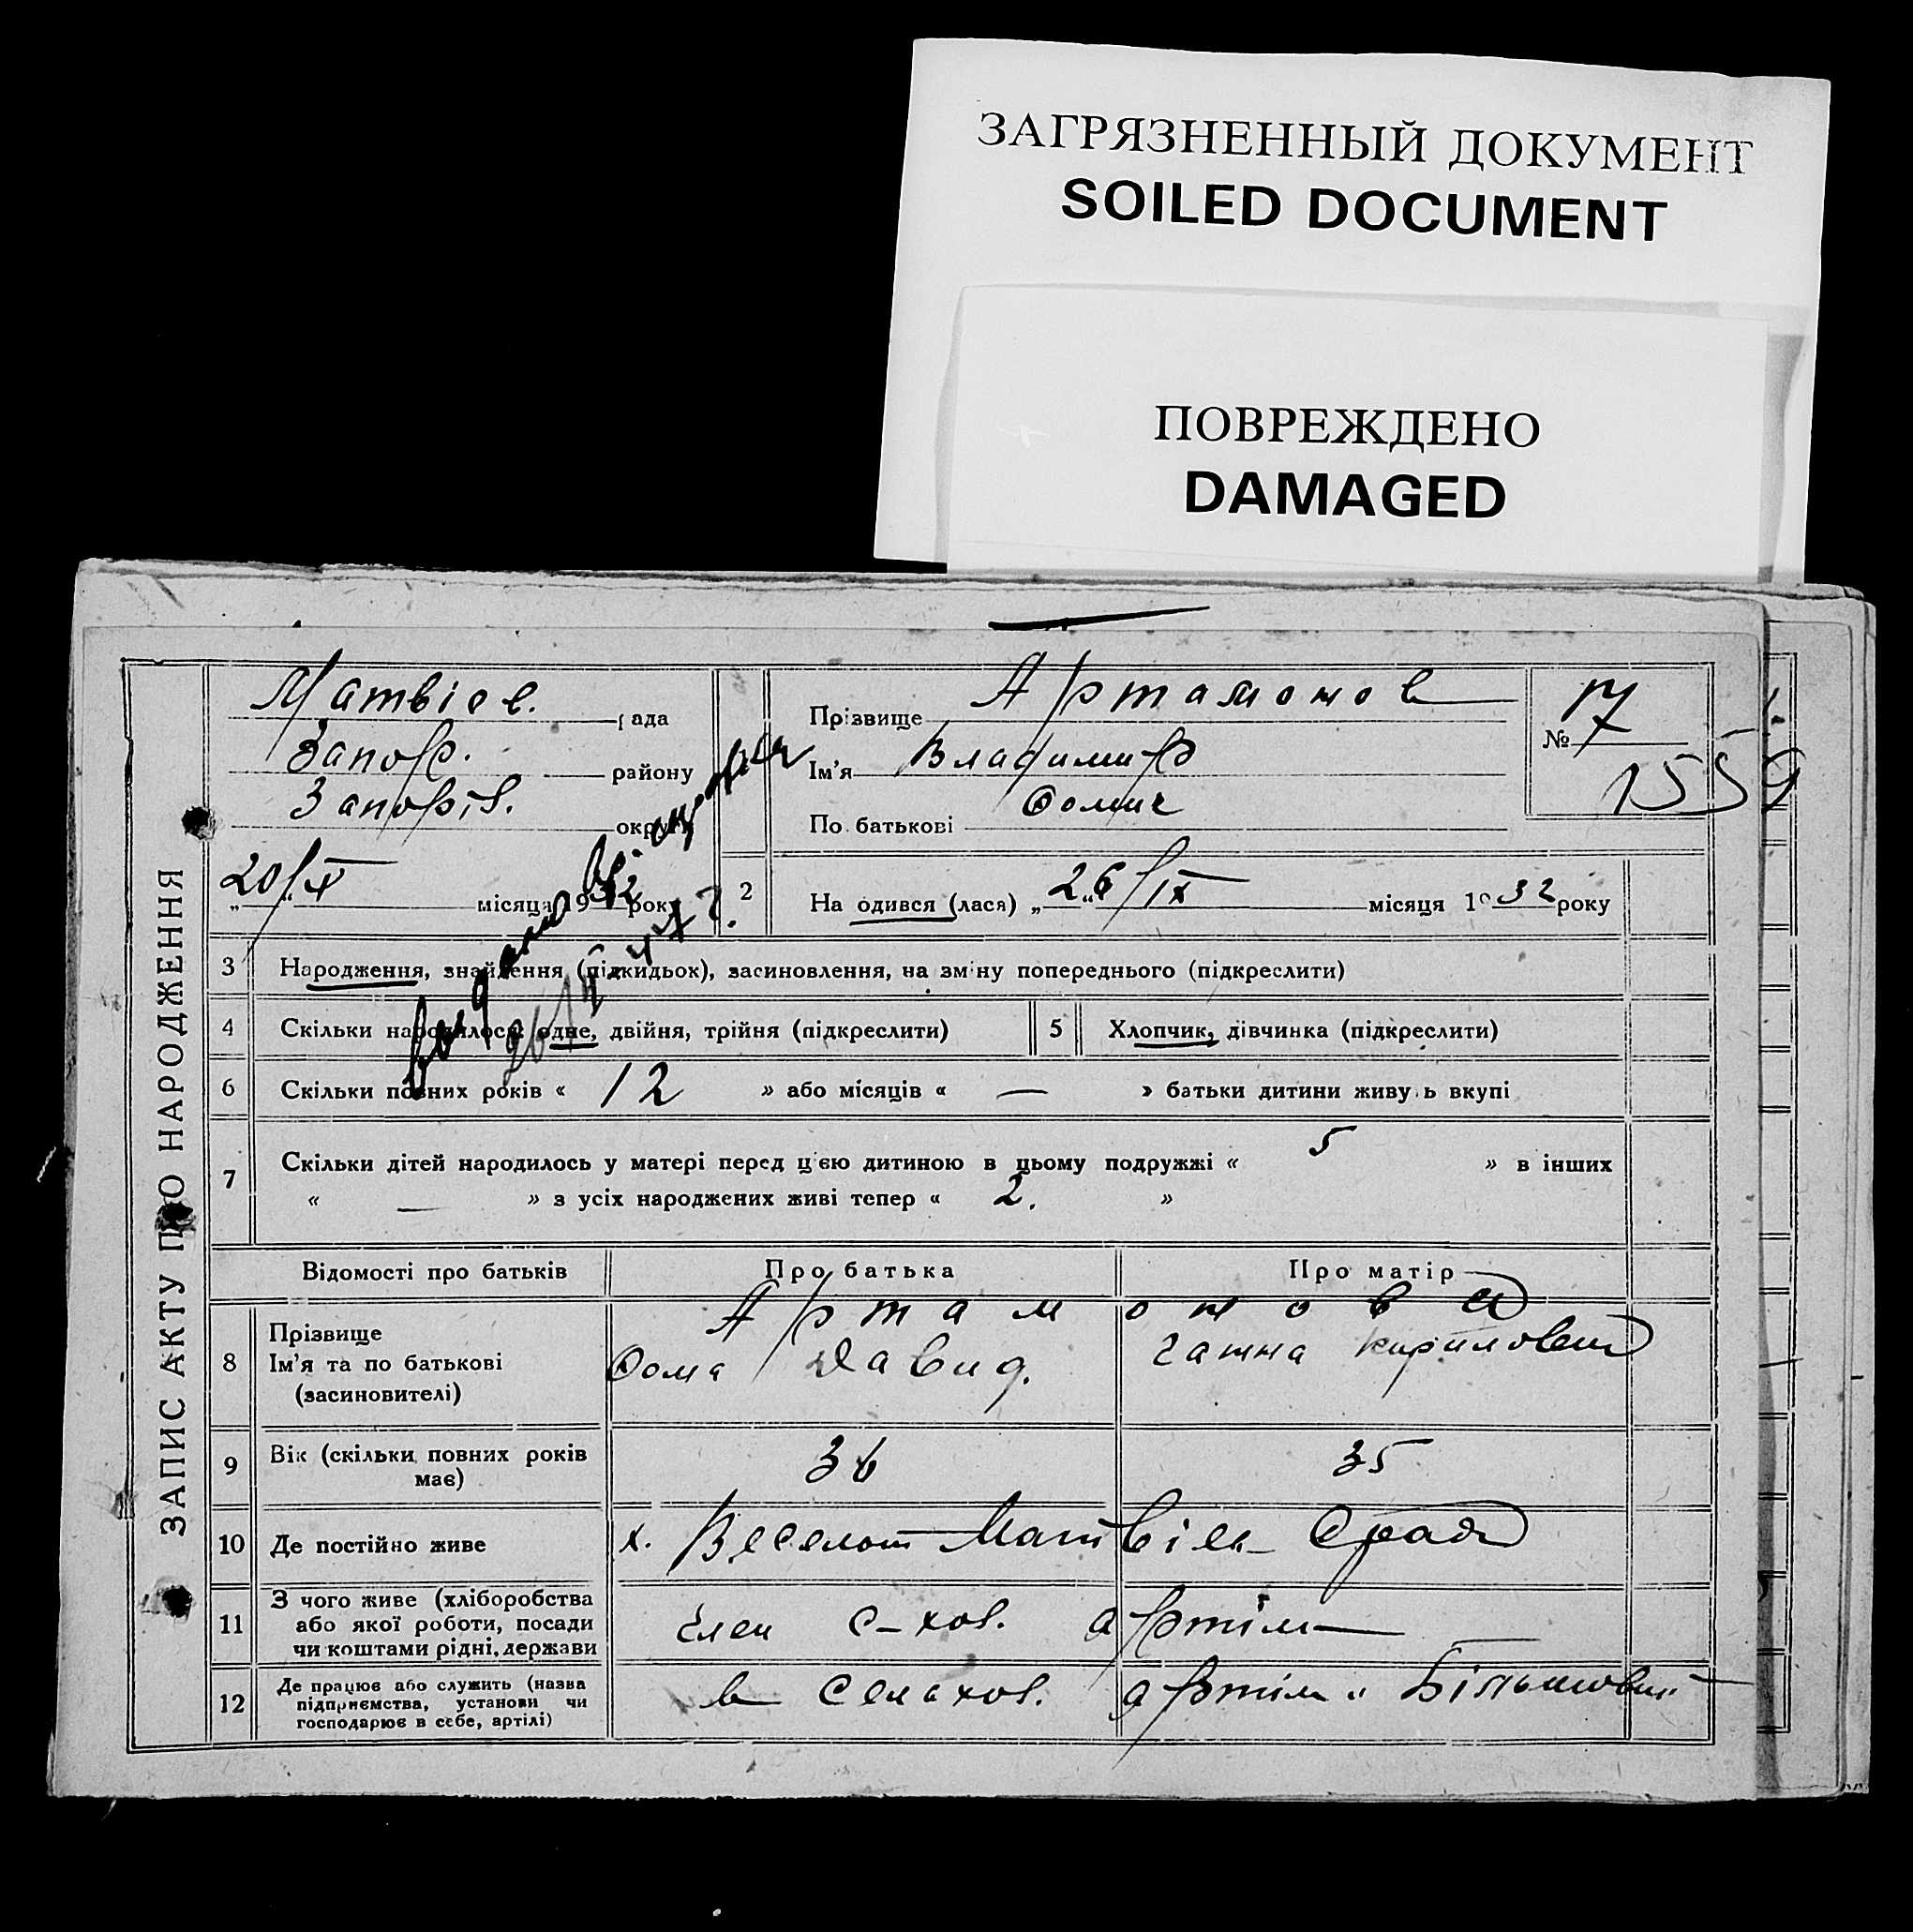 ЗАГРЯЗНЕННЫЙ ДОКУМЕНТ
SOILED DOCUMENT
ПОВРЕЖДЕНО
DAMAGED
ЗАПИС АКТУ ПРО НАРОДЖЕННЯ
Матвіев. рада
Запор. району
Запоріз. округи
„20/X місяця 1932 року
Прізвище Артамонов
Ім'я Владимир
По батькові Фомич
№ 17
1559
2 Народився (лася) „26/IX місяця 1932 року
3 Народження, знайдення (підкидьок), засиновлення, на зміну попереднього (підкреслити)
4 Скільки народилося: одне, двійня, трійня (підкреслити)
5 Хлопчик, дівчинка (підкреслити)
6 Скільки повних років « 12 » або місяців « — » батьки дитини живуть вкупі
7 Скільки дітей народилось у матері перед цією дитиною в цьому подружжі « 5 » в інших
« — » з усіх народжених живі тепер « 2. »
Відомості про батьків Про батька Про матір
8 Прізвище Артамонова
Ім'я та по батькові Фома Давид. Ганна Кириловна
(засиновителі)
9 Вік (скільки повних років має) 36 35
10 Де постійно живе х. Матвіев
11 З чого живе (хліборобства
або якої роботи, посади
чи коштами рідні, держави
Член с-хов. артіли
12 Де працює або служить (назва
підприємства, установи чи
господарює в себе, артілі)
в артіли „Більшовик"